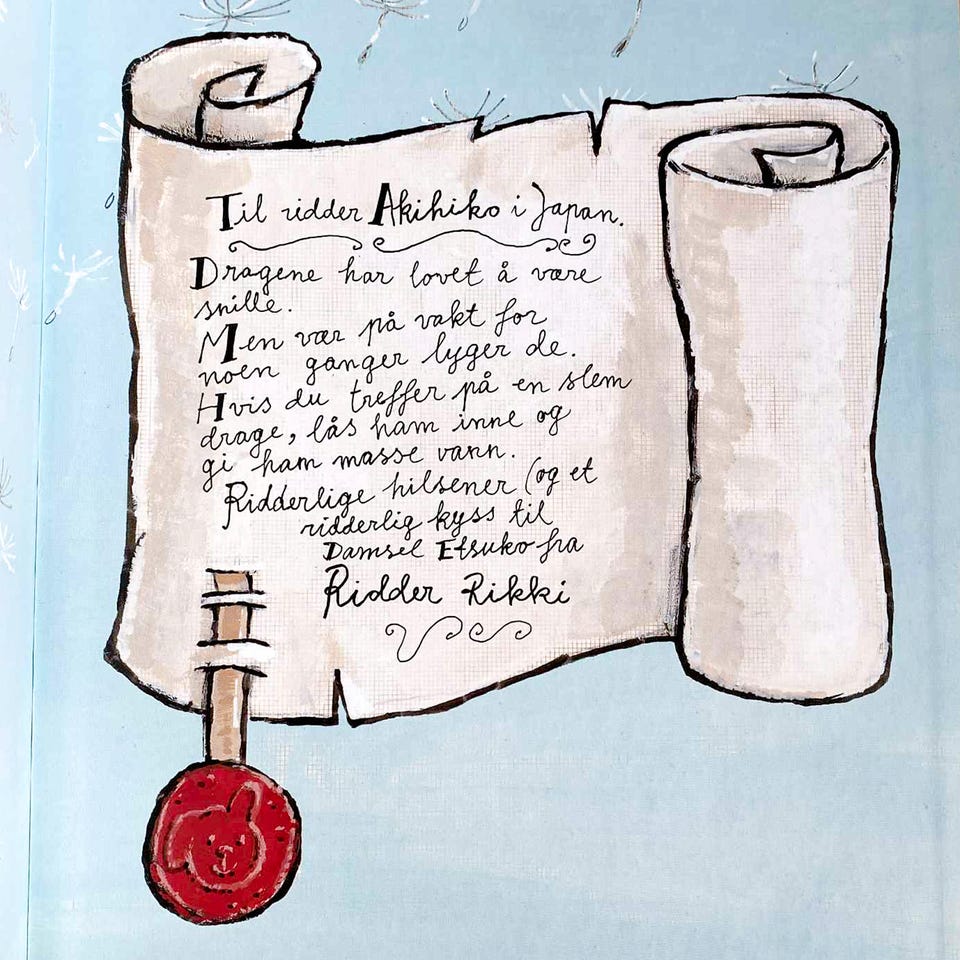 Til ridder Akihiko i Japan.
Dragene har lovet å være
snille.
Men vær på vakt for
noen ganger lyger de.
Hvis du treffer på en slem
drage, lås ham inne og
gi ham masse vann.
Ridderlige hilsener (og et
ridderlig kyss til
Damsel Etsuko fra
Ridder Rikki